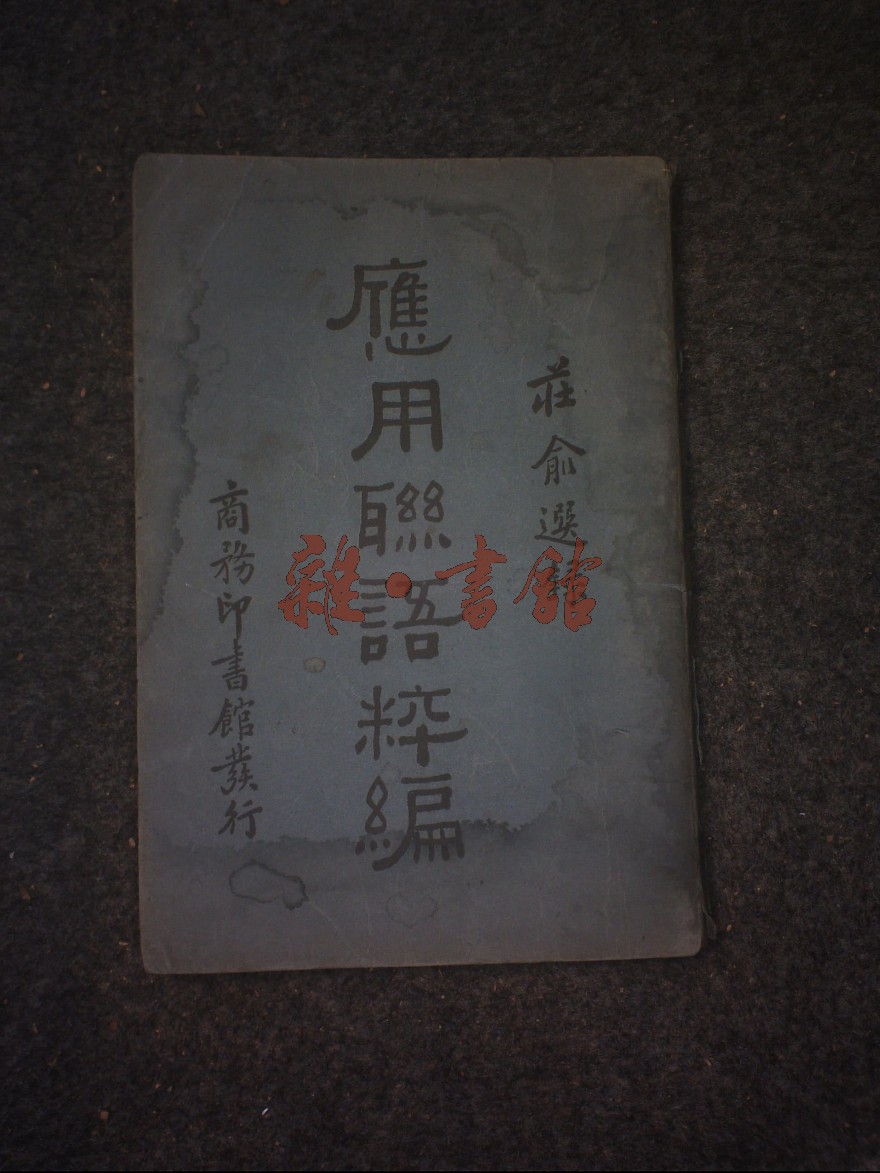 莊俞選輯
應用聯語粹編
商務印書館發行
雜·書館